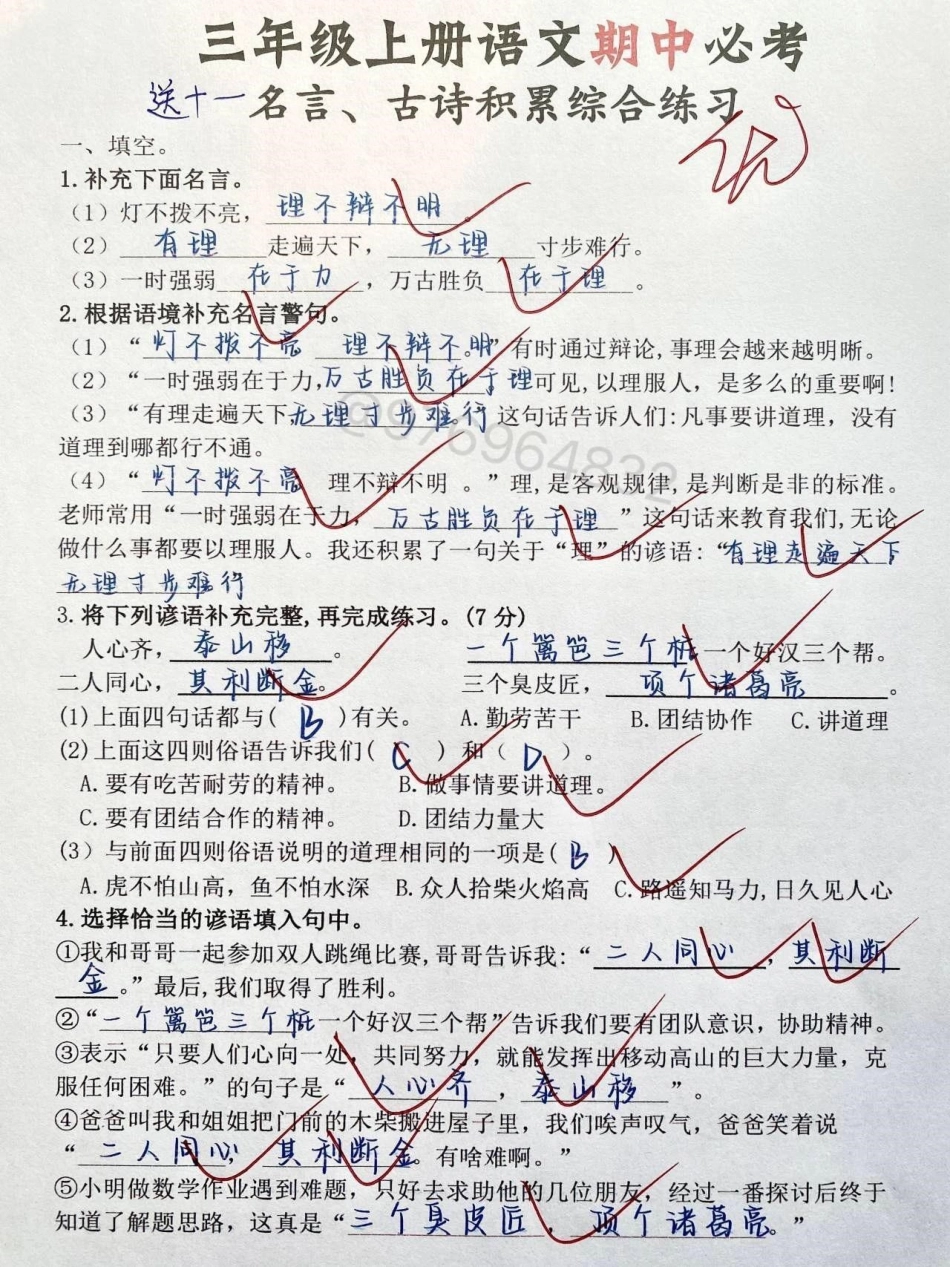 三年级上册语文期中必考
送十一名言、古诗积累综合练习
优
一、填空。
1.补充下面名言。
（1）灯不拨不亮，理不辩不明。
（2）有理走遍天下，无理寸步难行。
（3）一时强弱在于力，万古胜负在于理。
2.根据语境补充名言警句。
（1）“灯不拨不亮 理不辩不明。”有时通过辩论,事理会越来越明晰。
（2）“一时强弱在于力,万古胜负在于理可见,以理服人，是多么的重要啊!
（3）“有理走遍天下,无理寸步难行。这句话告诉人们:凡事要讲道理，没有
道理到哪都行不通。
（4）“灯不拨不亮 理不辩不明 。”理,是客观规律,是判断是非的标准。
老师常用“一时强弱在于力，万古胜负在于理”这句话来教育我们,无论
做什么事都要以理服人。我还积累了一句关于“理”的谚语：“有理走遍天下
无理寸步难行
3.将下列谚语补充完整,再完成练习。(7分)
人心齐，泰山移。 一个篱笆三个桩 一个好汉三个帮。
二人同心，其利断金。 三个臭皮匠，项个诸葛亮。
(1)上面四句话都与( B )有关。 A.勤劳苦干 B.团结协作 C.讲道理
(2)上面这四则俗语告诉我们( C ) 和（ D ）。
A.要有吃苦耐劳的精神。 B.做事情要讲道理。
C.要有团结合作的精神。 D.团结力量大
(3）与前面四则俗语说明的道理相同的一项是( B )
A.虎不怕山高，鱼不怕水深 B.众人拾柴火焰高 C.路遥知马力,日久见人心
4.选择恰当的谚语填入句中。
①我和哥哥一起参加双人跳绳比赛,哥哥告诉我:“二人同心，其利断
金。”最后,我们取得了胜利。
②“一个篱笆三个桩一个好汉三个帮”告诉我们要有团队意识，协助精神。
③表示“只要人们心向一处，共同努力，就能发挥出移动高山的巨大力量，克
服任何困难。”的句子是“人心齐，泰山移”。
④爸爸叫我和姐姐把门前的木柴搬进屋子里，我们唉声叹气，爸爸笑着说
“二人同心，其利断金。有啥难啊。”
⑤小明做数学作业遇到难题，只好去求助他的几位朋友，经过一番探讨后终于
知道了解题思路，这真是“三个臭皮匠，顶个诸葛亮。”
@976964832